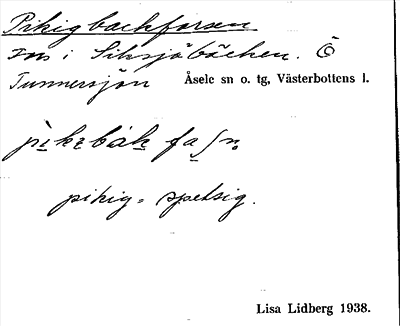 Pikigbackforsen
Fors i Siksjöbäcken. Ö
Tunnersjön Åsele sn o. tg, Västerbottens l.
pikig = spetsig.
Lisa Lidberg 1938.